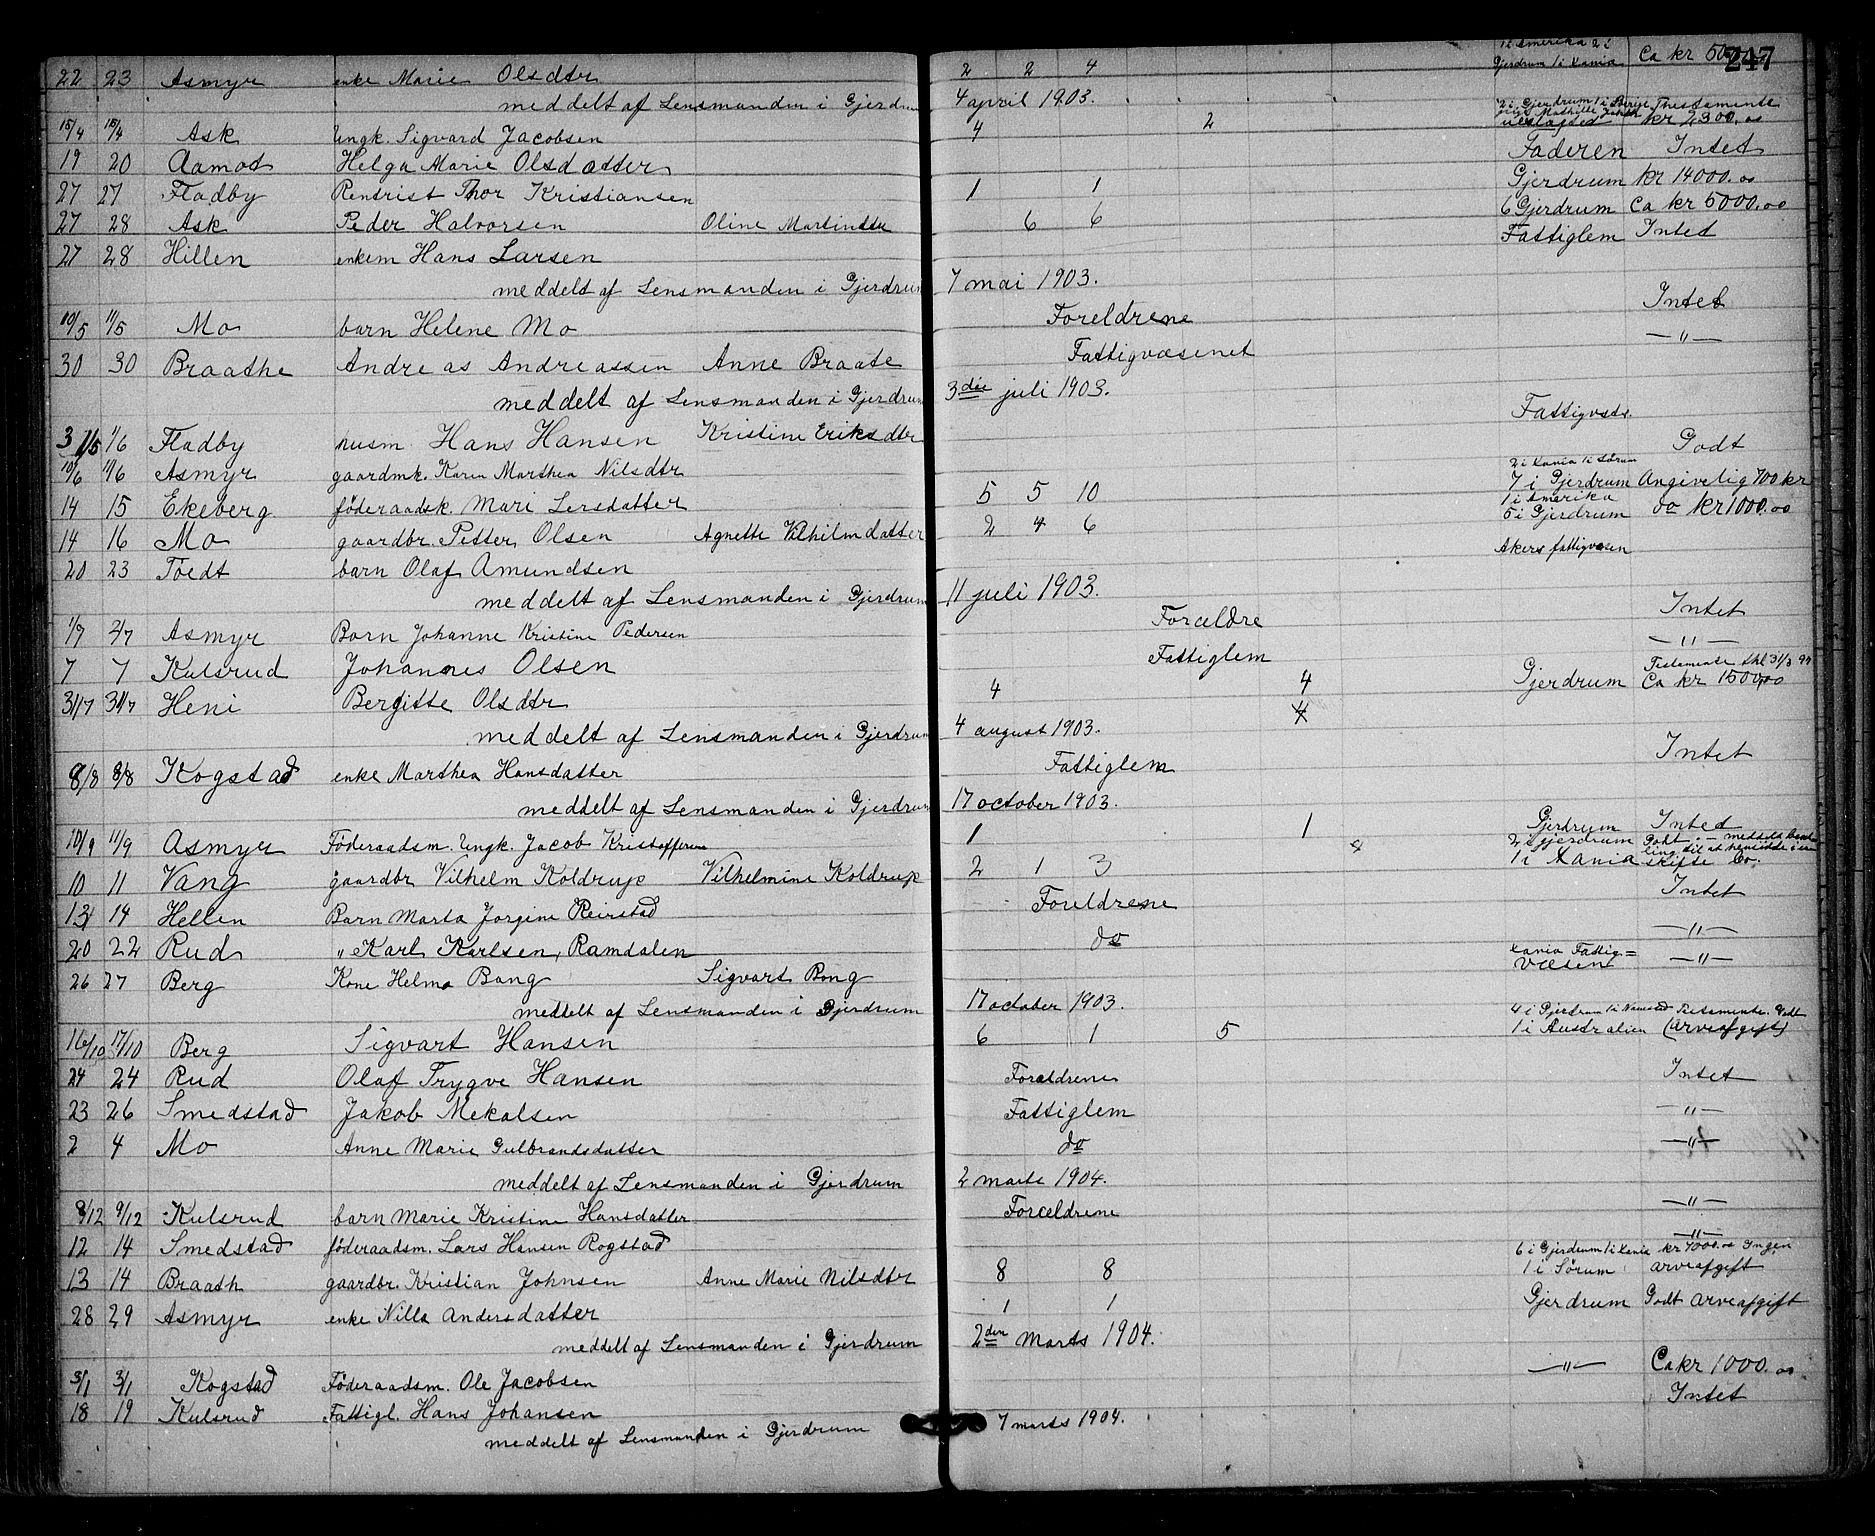 247
22 23 Asmyr enke Marie Olsdtr 2 2 4 Gjerdrum 1 i Xania Ca kr 50
meddelt af Lensmanden i Gjerdrum 4 april 1903.
15/4 15/4 Ask Ungk. Sigvard Jacobsen 4 2 kr 2300.00
19 20 Aamot Helga Marie Olsdatter Faderen Intet
27 27 Fladby Rentrist Thor Kristiansen 1 1 Gjerdrum kr 14000.00
27 28 Ask Peder Halvorsen Oline Martindtr 6 6 6 Gjerdrum Ca kr 5000.00
27 28 Hillen enkem Hans Larsen Fattiglem Intet
meddelt af Lensmanden i Gjerdrum 7 mai 1903.
10/5 11/5 Mo barn Helene Mo Foreldrene Intet
30 30 Braathe Andreas Andreassen Anne Braate Fattigvæsenet —"—
meddelt af Lensmanden i Gjerdrum 3die juli 1903.
31/5 1/6 Fladby husm. Hans Hansen Kristine Eriksdtr Fattigvæs.
10/6 11/6 Asmyr gaardmk. Karen Marthea Nilsdtr Godt
2 i Xania 1 i Sørum
14 15 Ekeberg föderaadsk. Mari Larsdatter 5 5 10 7 i Gjerdrum Angivelig 700 kr
1 i Amerika
14 16 Mo gaardbr. Petter Olsen Agnette Vilhilmdatter 2 4 6 5 i Gjerdrum do kr 1000.00
20 23 Toedt barn Olaf Amundsen Akers fattigvæsen
meddelt af Lensmanden i Gjerdrum 11 juli 1903.
1/7 2/7 Asmyr Barn Johanne Kristine Pedersen Forældre Intet
7 7 Kulsrud Johannes Olsen Fattiglem —"—
Testamente
31/7 31/7 Heni Bergitte Olsdtr 4 4 Gjerdrum Ca kr 1500,00
4
meddelt af Lensmanden i Gjerdrum 4 august 1903.
8/8 8/8 Kogstad enke Marthea Hansdatter Fattiglem Intet
meddelt af Lensmanden i Gjerdrum 17 october 1903.
10/9 11/9 Asmyr Föderaadsm. Ungk. Jacob Kristoffersen 1 1 Gjerdrum Intet
2 i gjerdrum Godt - meddelt
10 11 Vang gaardbr Vilhelm Koldrup Vilhelmine Koldrup 2 1 3 1 i Xania skifte bo.
13 14 Hellen Barn Marta Jorgine Reirstad Foreldrene Intet
20 22 Rud " Karl Karlsen, Ramdalen do —"—
26 27 Berg Kone Helma Bang Sigvart Bang Xania Fattig= væsen —"—
meddelt af Lensmanden i Gjerdrum 17 october 1903.
4 i Gjerdrum 1 i Testamente. Godt
16/10 17/10 Berg Sigvart Hansen 6 1 5 1 i Australien (arveafgift)
24 24 Rud Olaf Trygve Hansen Forældrene Intet
23 26 Smedstad Jakob Mekalsen Fattiglem —"—
2 4 Mo Anne Marie Gulbrandsdatter do —"—
meddelt af Lensmanden i Gjerdrum 2 marts 1904.
8/12 9/12 Kulsrud barn Marie Kristine Hansdatter Forældrene —"—
12 14 Smedstad föderaadsm. Lars Hansen Rogstad —"—
6 i Gjerdrum 1 i Xania kr 7000.00 Ingen
13 14 Braath gaardbr. Kristian Johnsen Anne Marie Nilsdtr 8 8 1 i Sørum arveafgift
28 29 Asmyr enke Nilla Andersdatter 1 1 Gjerdrum Godt arveafgift
meddelt af Lensmanden i Gjerdrum 2den Marts 1904.
3/1 3/1 Kogstad Föderaadsm. Ole Jacobsen —"— Ca kr 1000.00
18 19 Kulsrud Fattigl. Hans Johansen Intet
meddelt af Lensmanden i Gjerdrum 7 marts 1904.